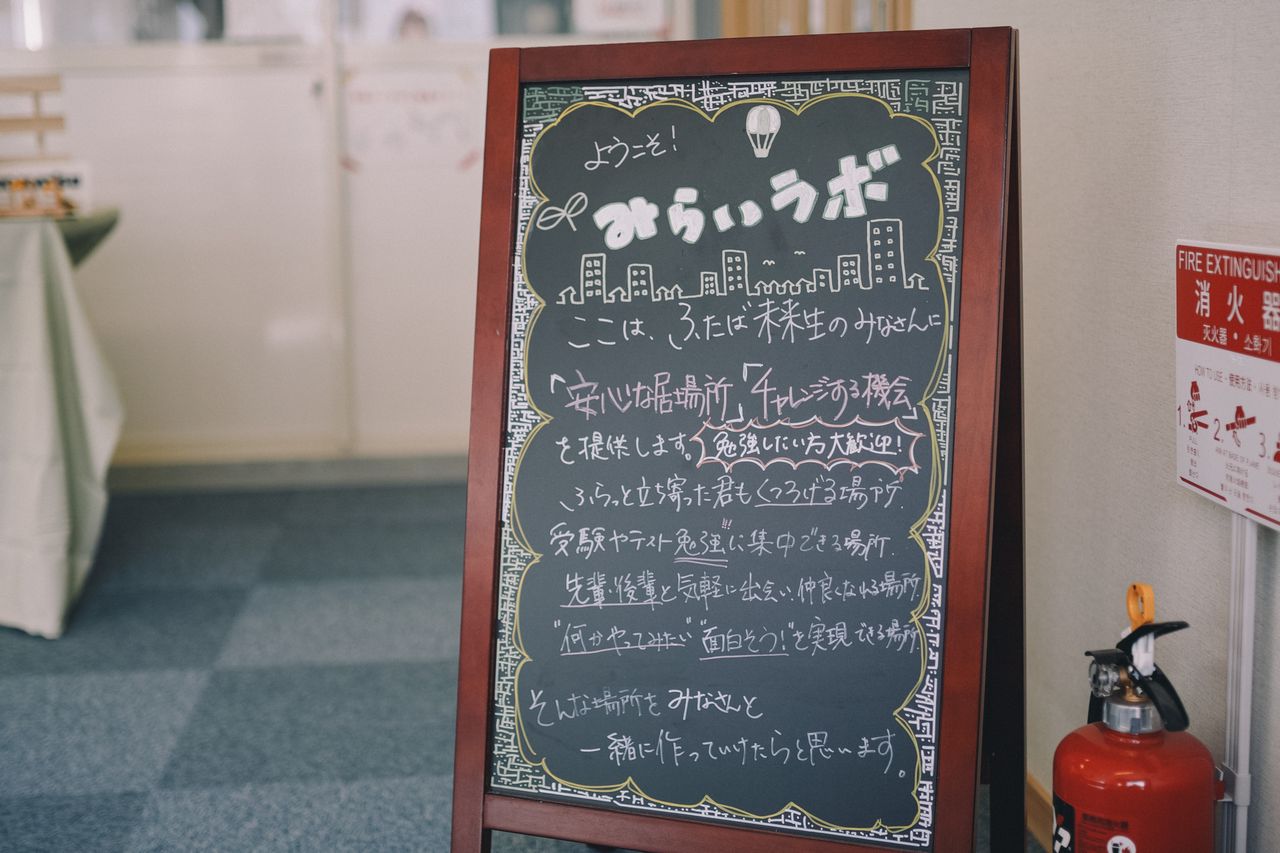 ようこそ!
みらいラボ
ここは、ふたば未来生のみなさんに
「安心な居場所」「チャレンジする機会」
を提供します。勉強したい方大歓迎!
ふらっと立ち寄った君もくつろげる場所.
受験やテスト勉強に集中できる場所.
先輩・後輩と気軽に出会い、仲良くなれる場所.
"何かやってみたい" "面白そう!"を実現できる場所.
そんな場所をみなさんと
一緒に作っていけたらと思います。
FIRE EXTINGUISH
消火器
灭火器・소화기
HOW TO USE・使用方法・
1. 2. 3.